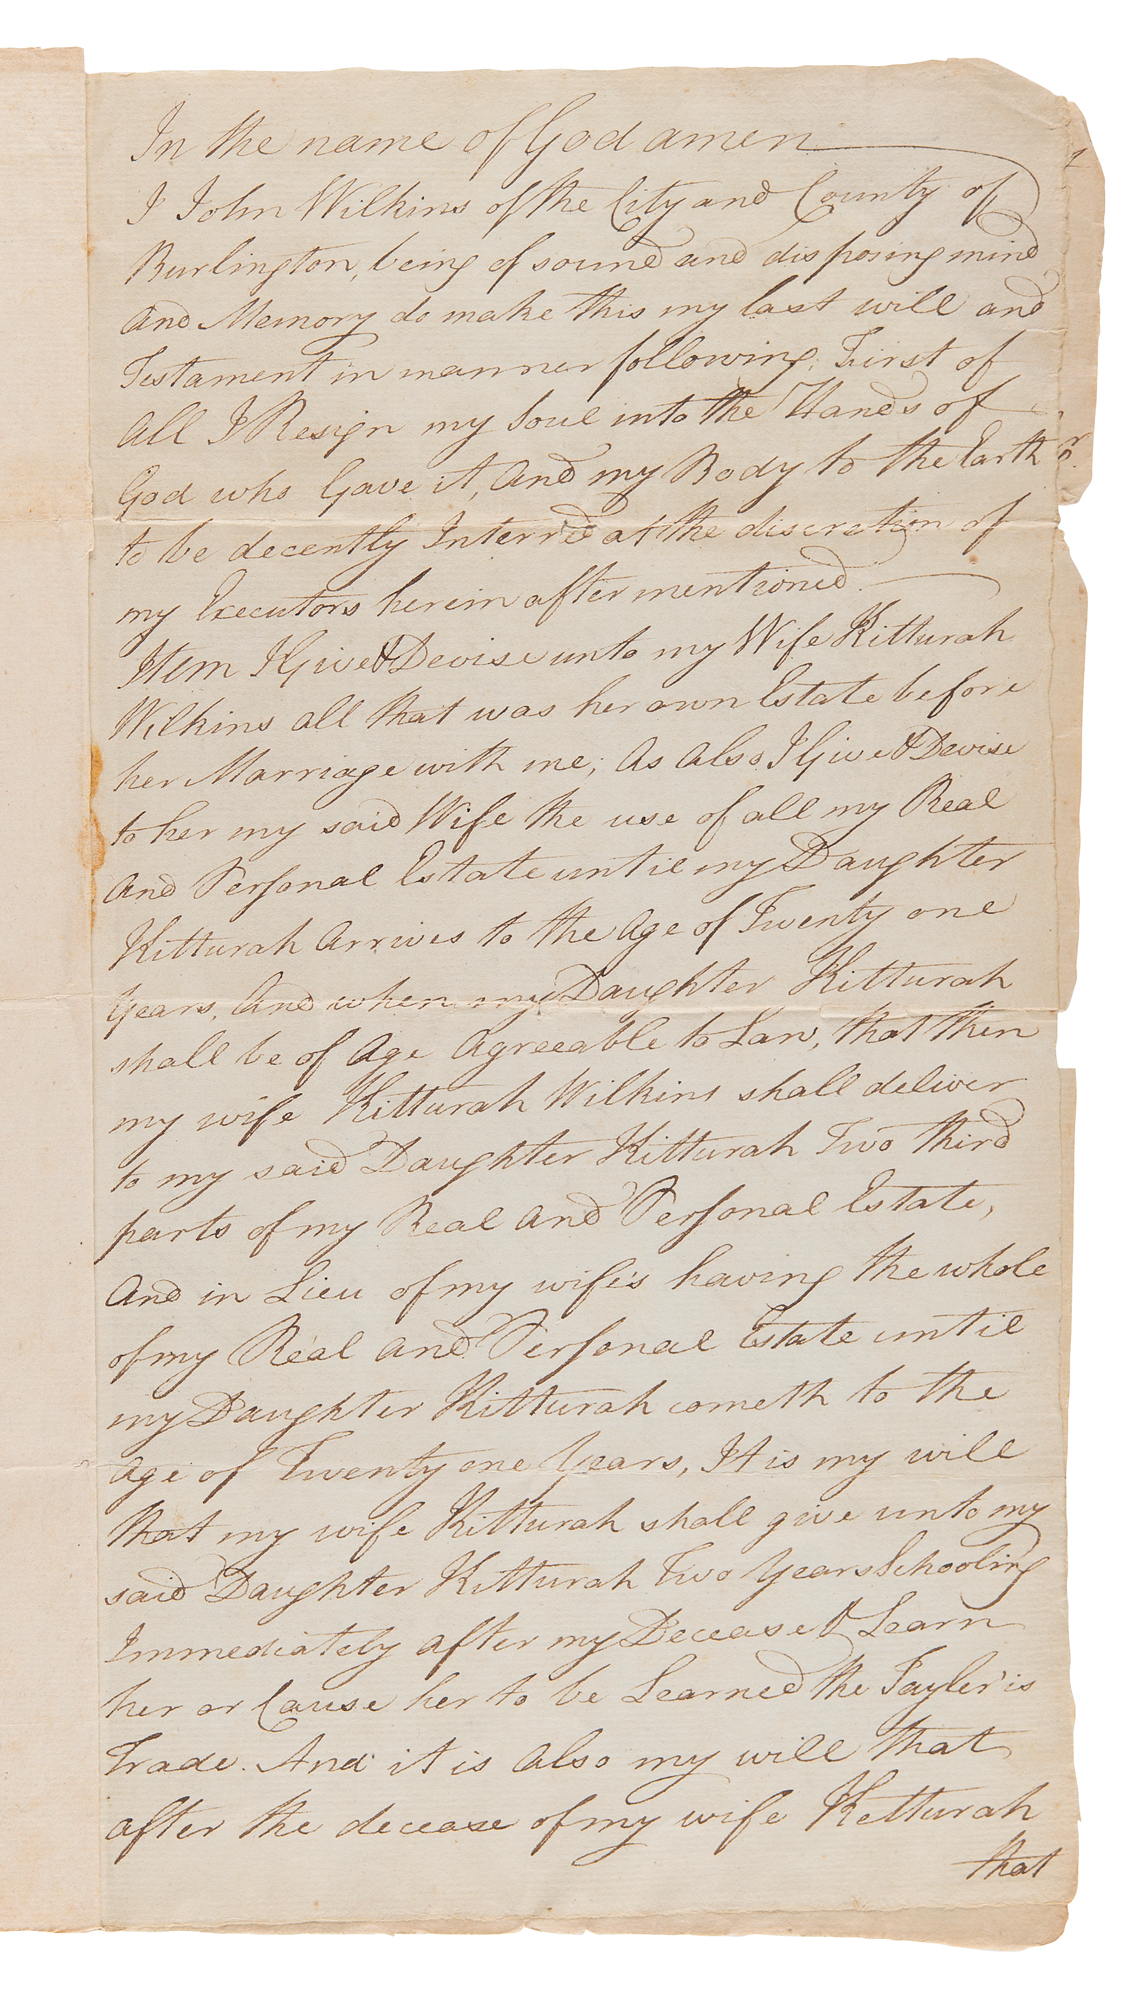 In the name of God amen
I John Wilkins of the City and County of
Burlington, being of sound and disposing mind
And Memory do make this my last will and
Testament in manner following; First of
All I Resign my Soul into the Hands of
God who Gave it, And my Body to the Earth
to be decently Interred at the discretion of
my Executors herein after mentioned.
Item I Give & Devise unto my Wife Kitturah
Wilkins all that was her own Estate before
her Marriage with me; As Also I Give & Devise
to her my said Wife the use of all my Real
And Personal Estate until my Daughter
Kitturah Arrives to the Age of Twenty one
Years, And when my Daughter Kitturah
shall be of Age Agreeable to Law, that then
my wife Kitturah Wilkins shall deliver
to my said Daughter Kitturah Two third
parts of my Real And Personal Estate,
And in Lieu of my wife's having the whole
of my Real And Personal Estate until
my Daughter Kitturah cometh to the
Age of Twenty one Years, It is my will
that my wife Kitturah shall give unto my
said Daughter Kitturah Two Years Schooling
Immediately after my Decease & Learn
her or Cause her to be Learned the Tayler's
Trade. And it is Also my will that
after the decease of my wife Ketturah
that